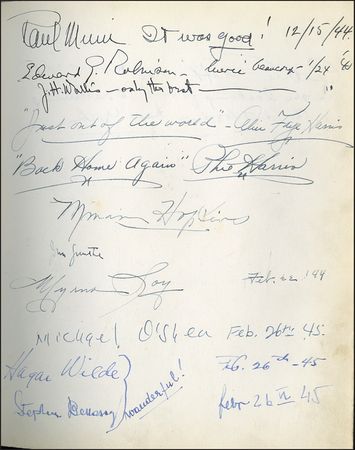 Paul Muni It was good! 12/15/44
Edward G. Robinson - 1/2
J.H. Wallis - only the best - "
"Just out of the world" - Alice Faye Harris
"Back Home Again" Phil Harris
Miriam Hopkins
Jim
Myrna Loy Feb. 22 '44
Michael O'Shea Feb. 26th. 45.
Hagar Wilde Fb. 26th - 45
Stephen wonderful! Febr 26th 45